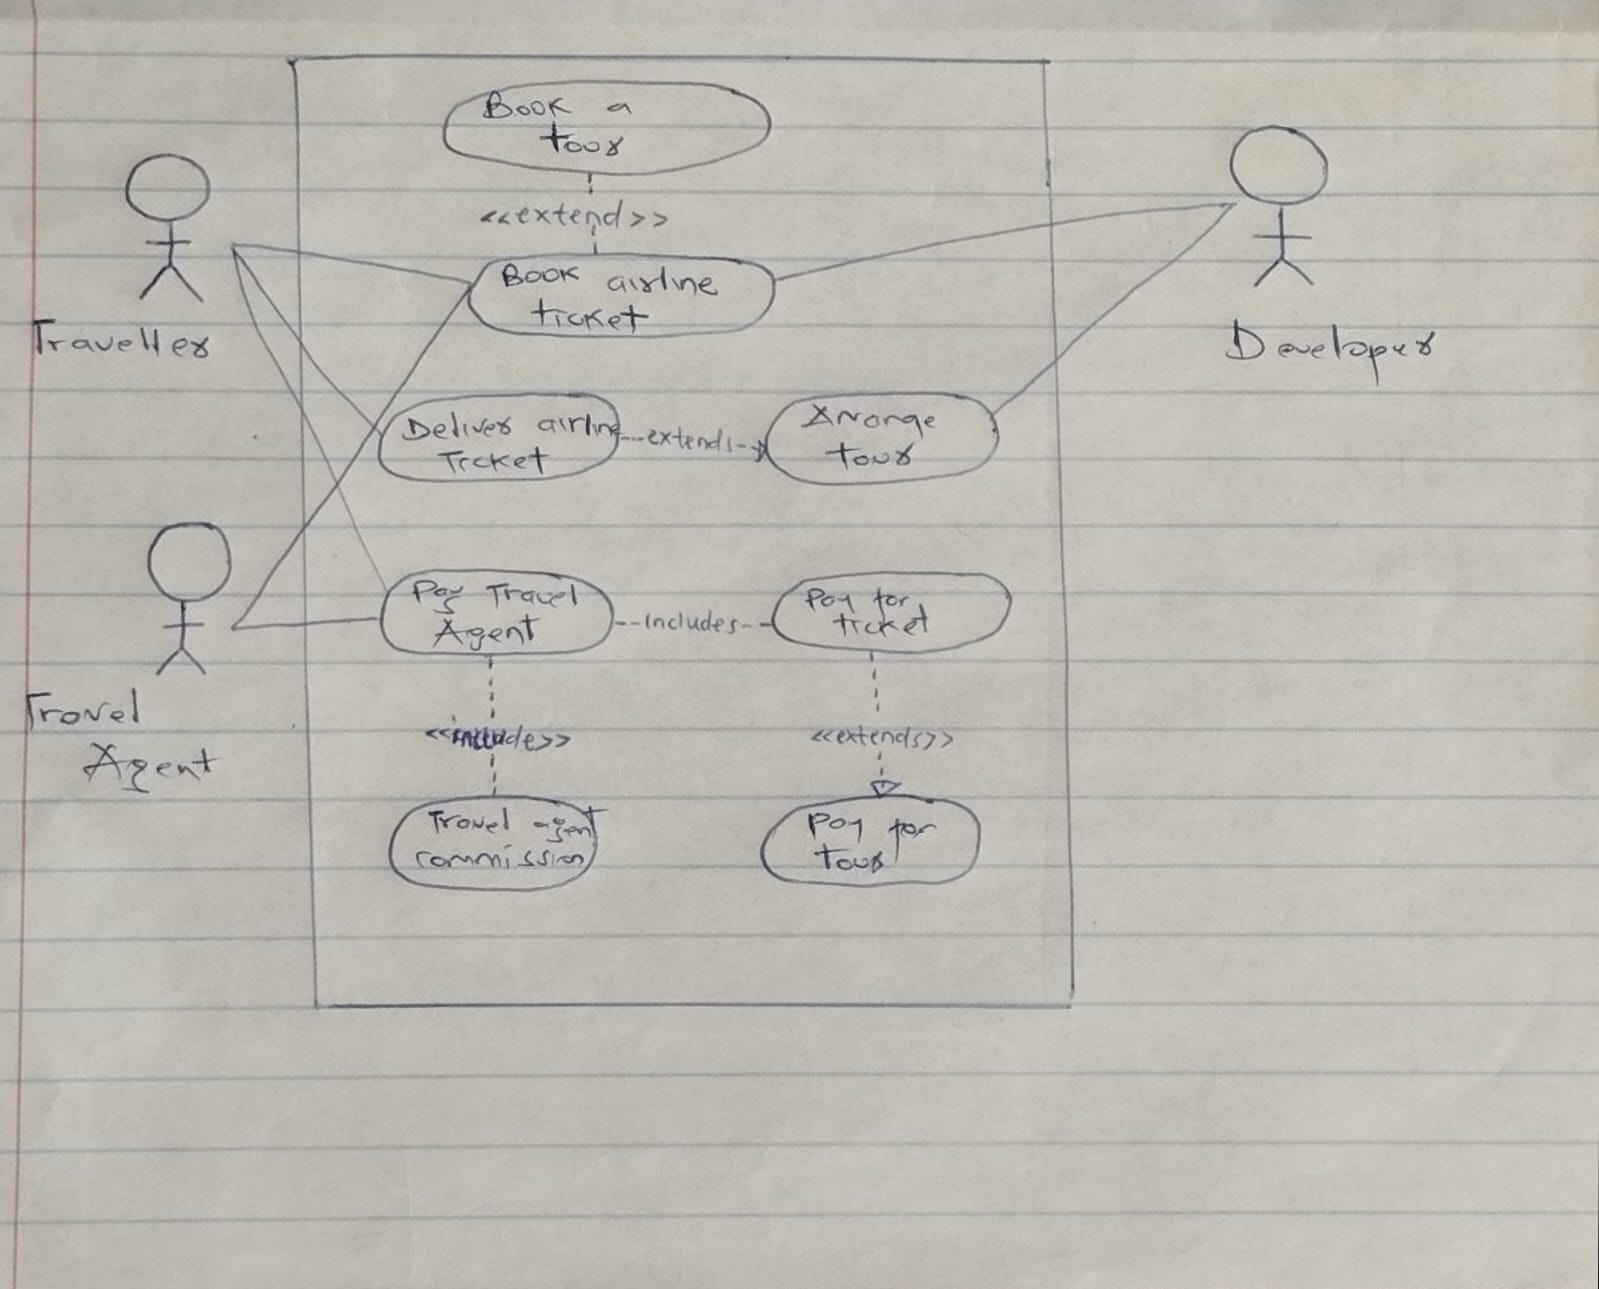 Book a
tour
<<extend>>
Book airline
ticket
Traveller
Developer
Deliver airline
Ticket
extends
Arrange
tour
Pay Travel
Agent
includes
Pay for
ticket
Travel
Agent
<<include>>
<<extends>>
Travel agent
commission
Pay for
tour